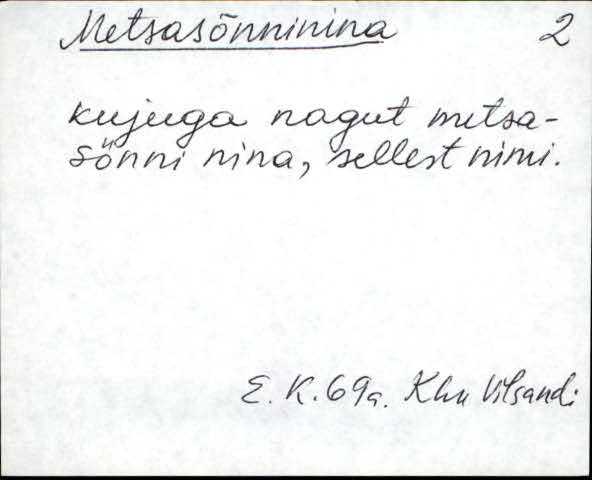 Metsasõnninina 2
kujuga nagut metsa-
sönni nina, sellest nimi.
E. K. 69a. Khn Vilsandi